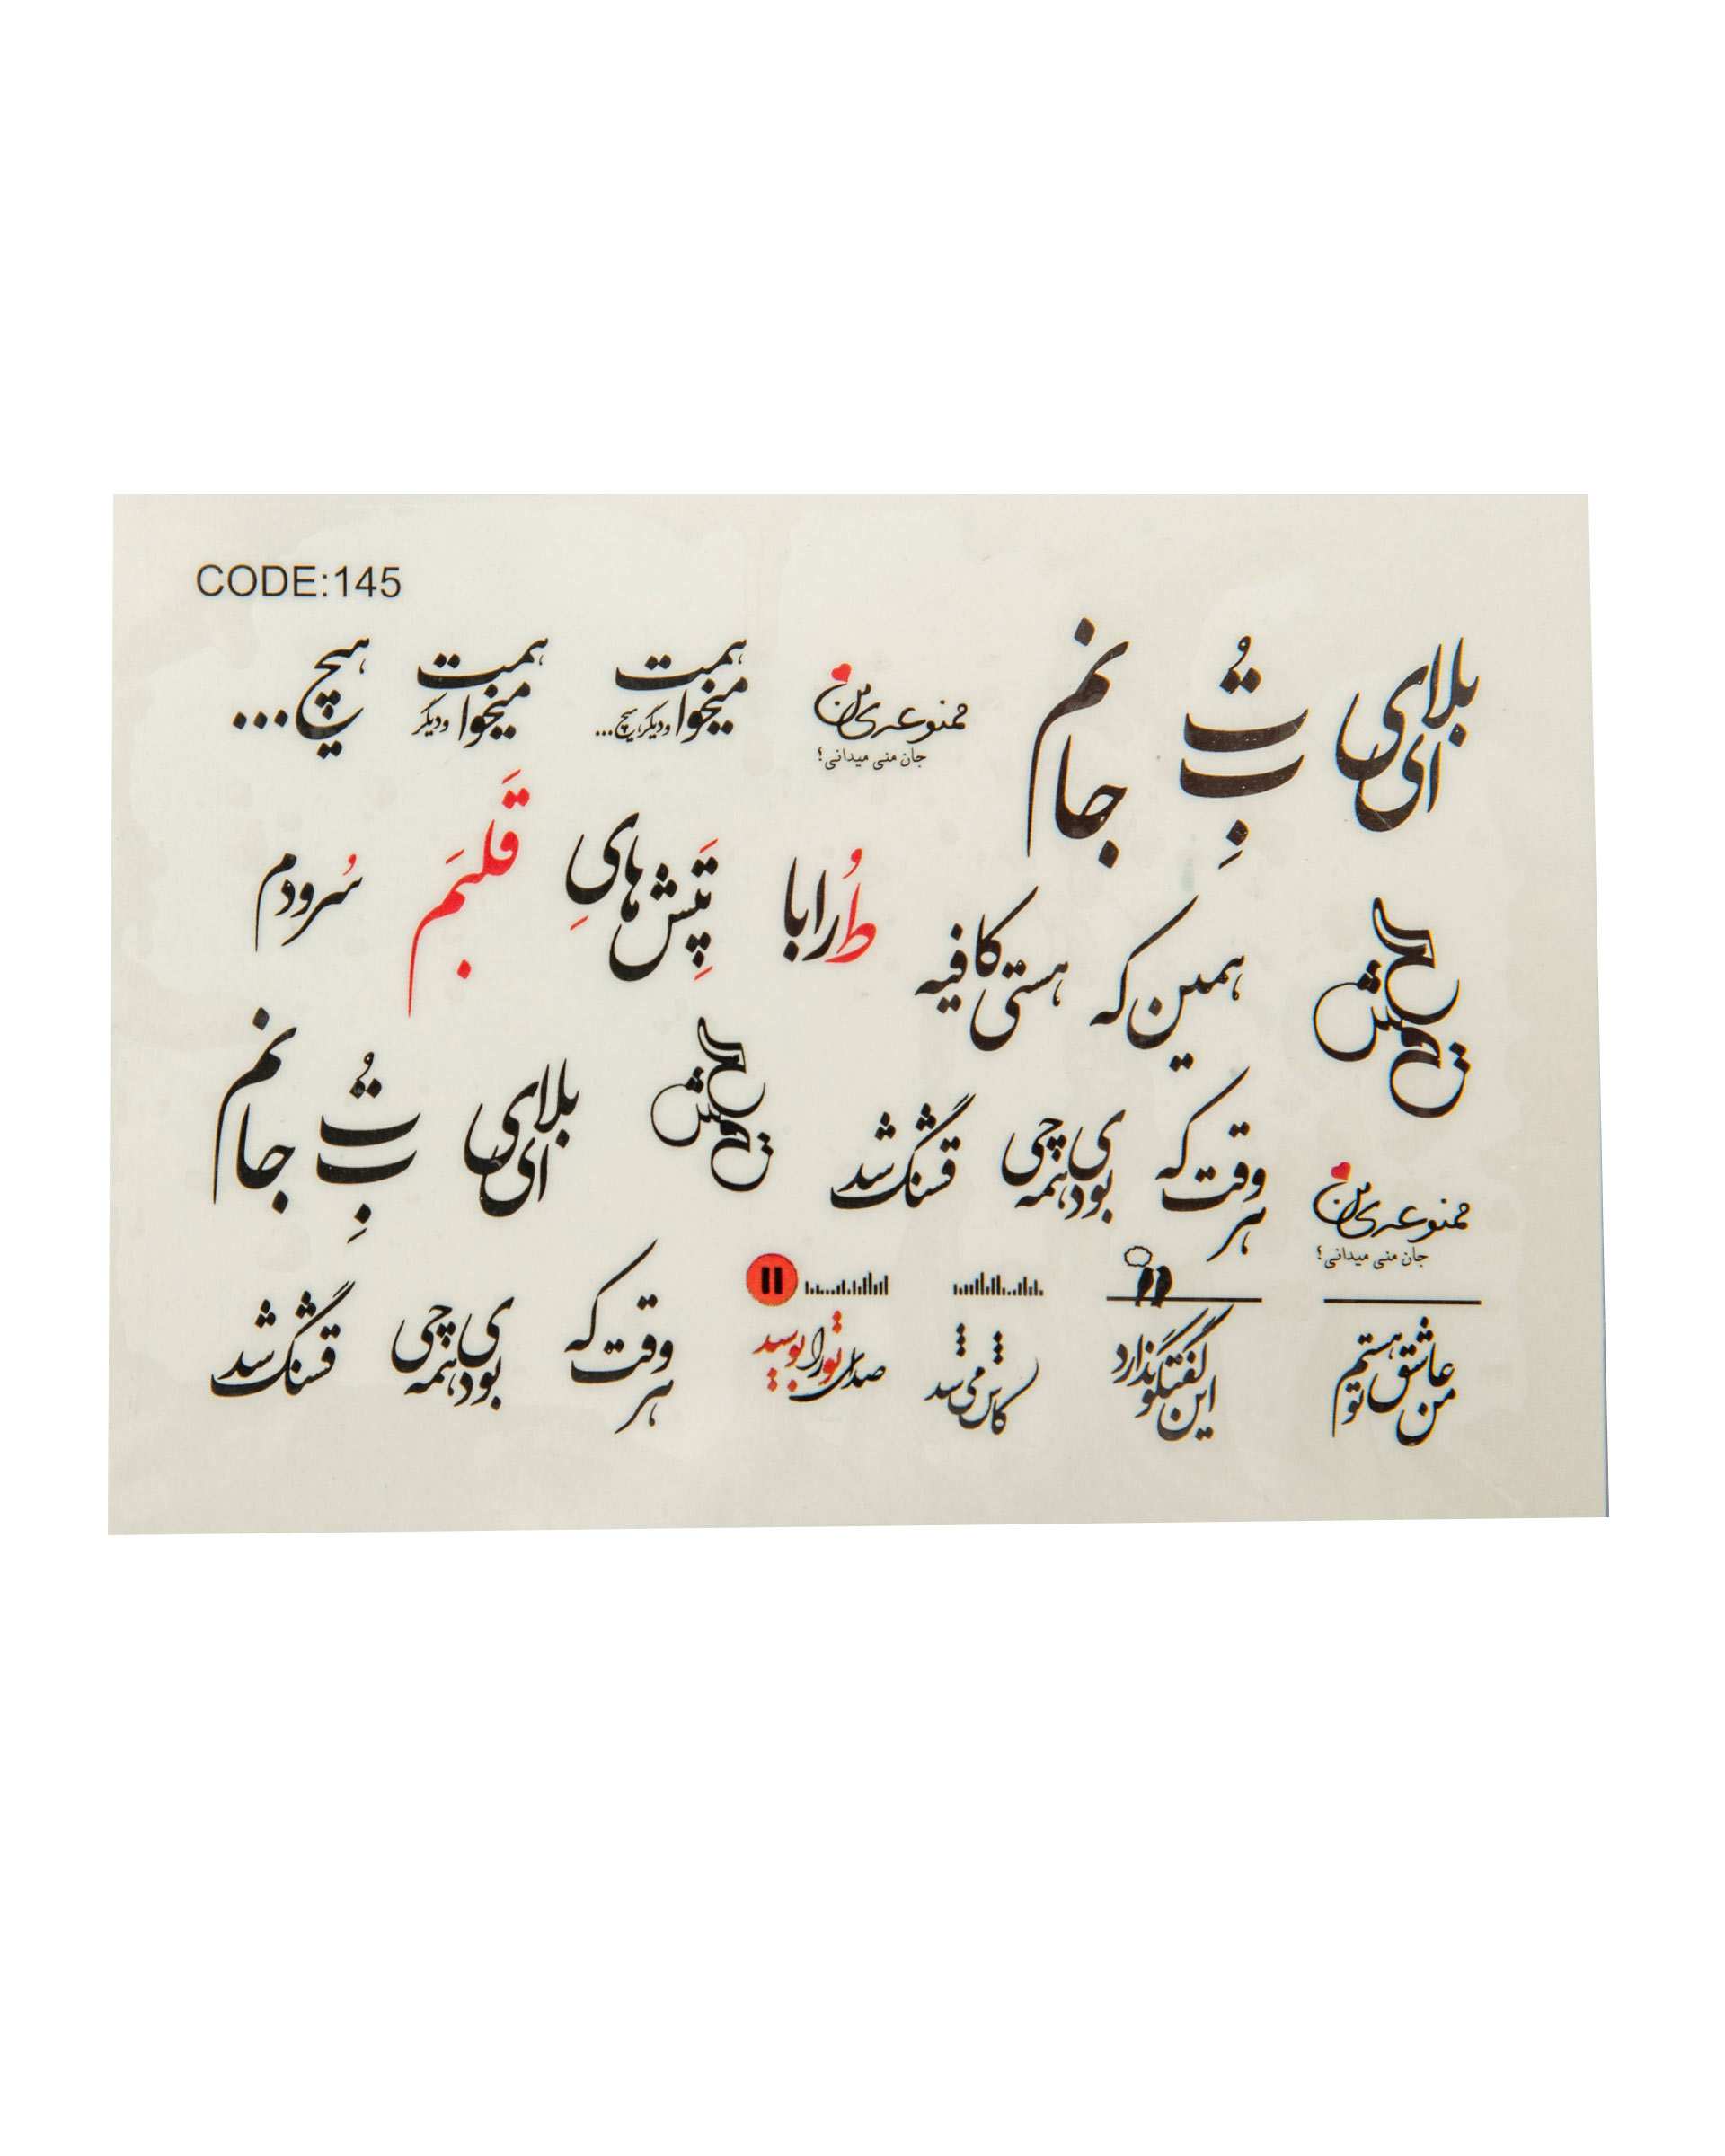 CODE:145
بلای
ای
تُ
بِ
نم
جا
ممنوعه‌ی من
جان منی میدانی؟
همت
میخوا
و دیگر هیچ...
همت
میخوا
و دیگر
هیچ
...
همین که
هستی کافیه
طُ را با
تَپِش
های
قَلبَم
سُرودم
هر
وقت که
بودی
همه چی
قشنگ شد
بلای
ای
تُ
بِ
نم
جا
ممنوعه‌ی من
جان منی میدانی؟
من
عاشق هستم
تو
این گفتگو ندارد
کاش می شد
صدای تو را بوسید
هر
وقت که
بودی
همه چی
قشنگ شد